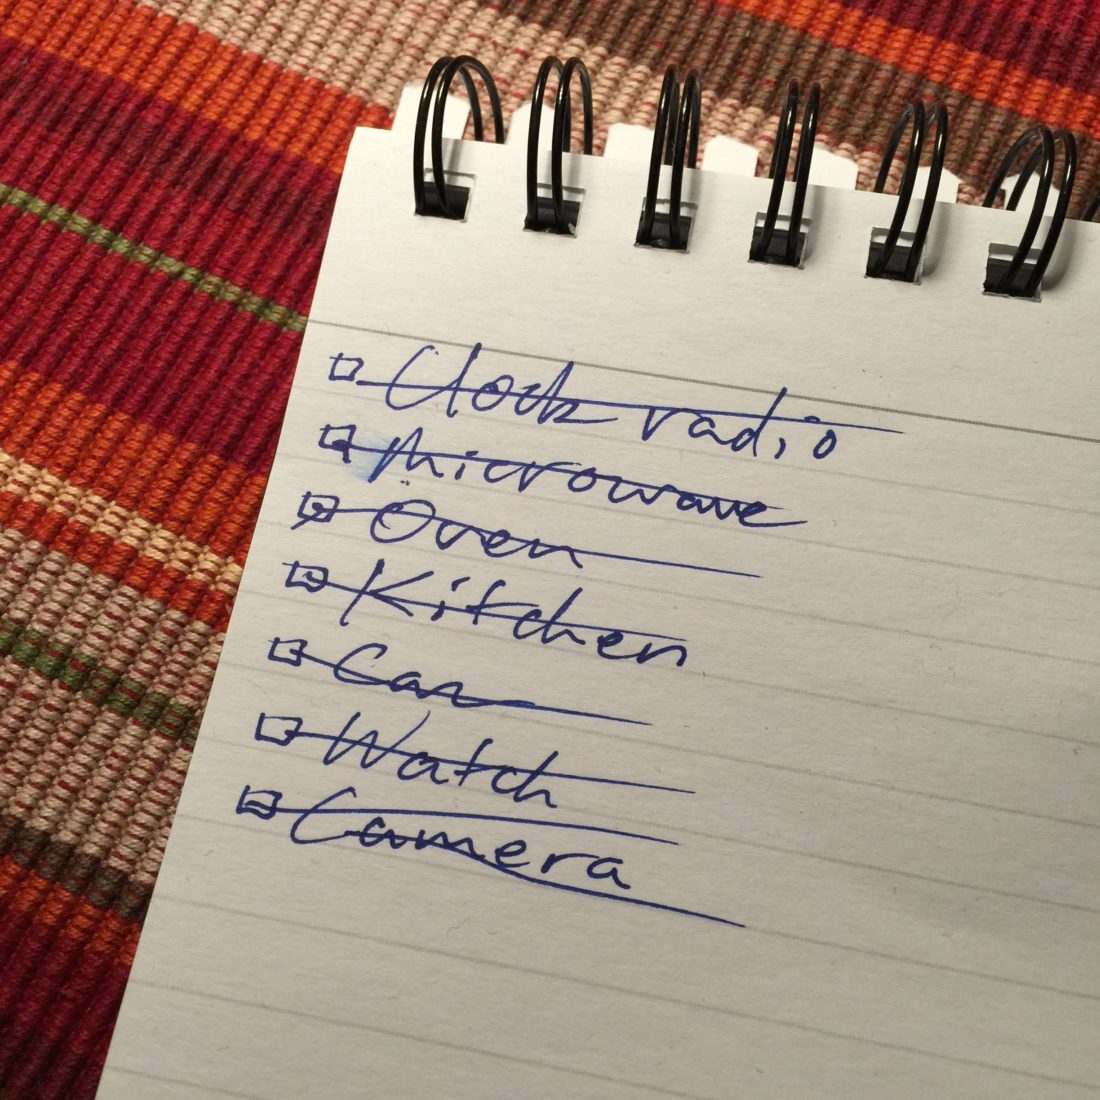 Clock radio
Microwave
Oven
Kitchen
Car
Watch
Camera